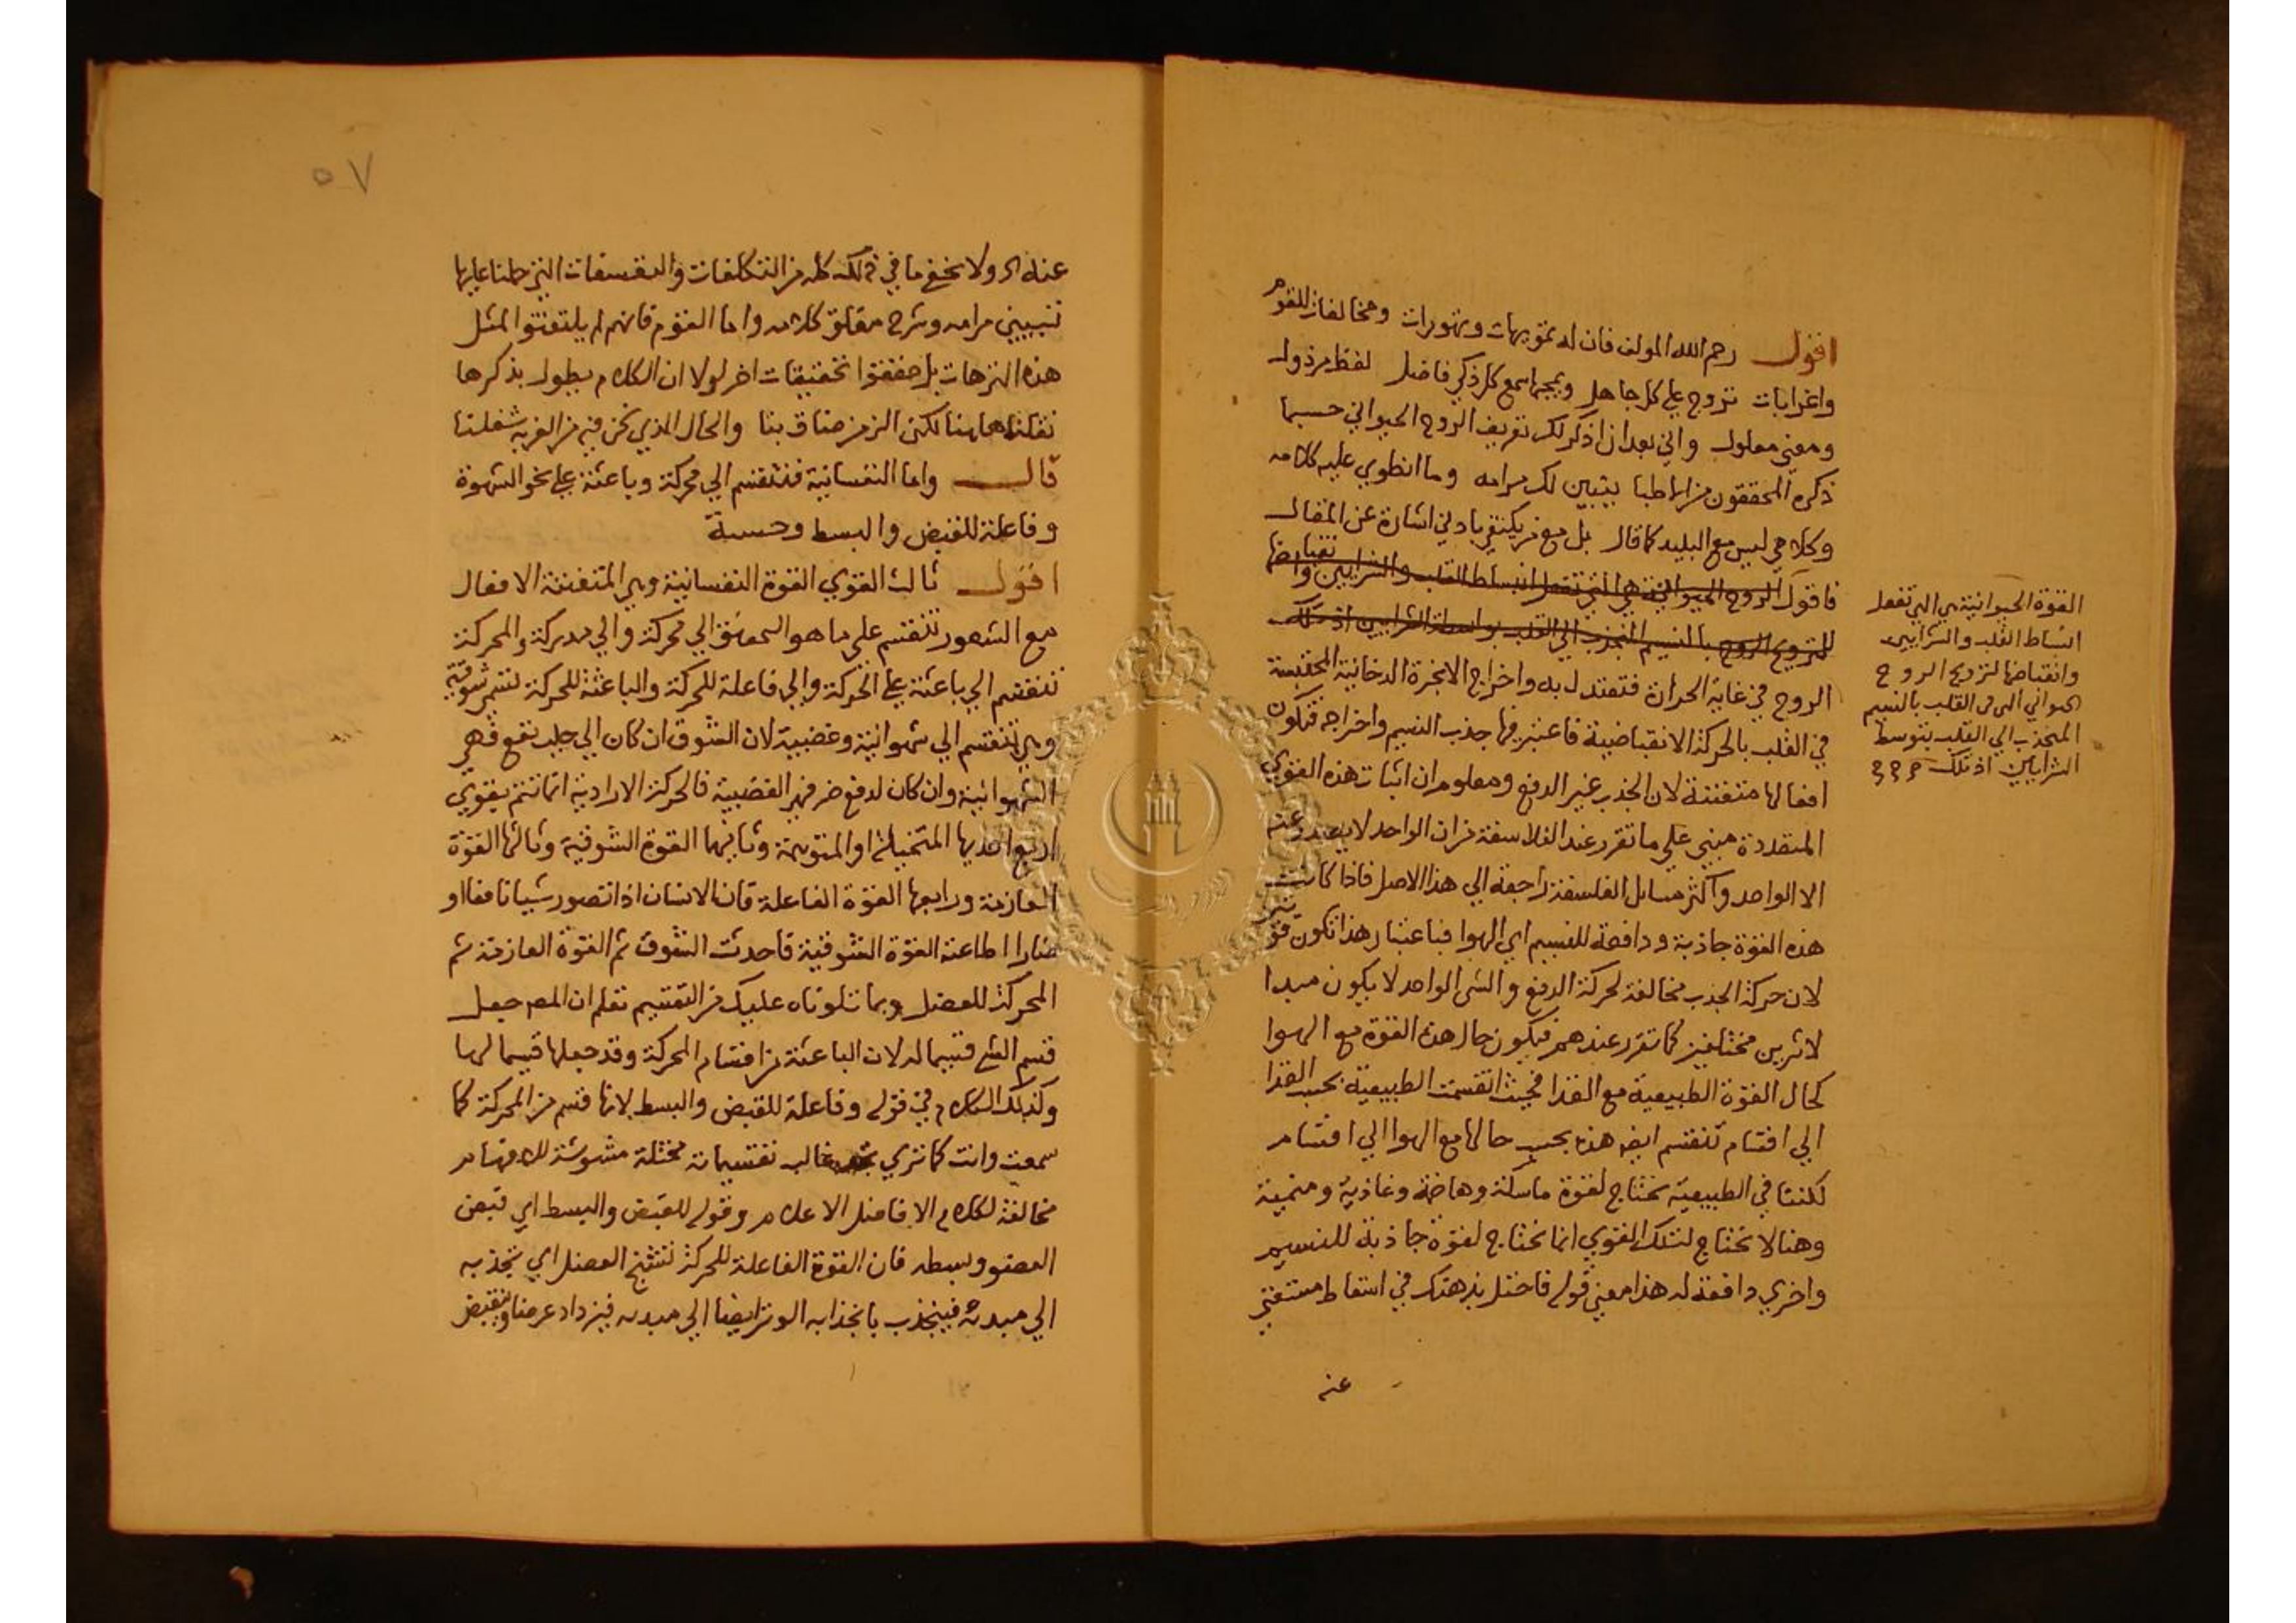 اقول رحم الله المولف فان له تمويهات وتهورات ومخالفات للقوم
واغرابات تروج علي كل جاهل ويمجها سمع كل ذكي فاضل لفظ مرذول
ومعني معلول واني بعد ان اذكر لك تعريف الروح الحيواني حسبما
ذكره المحققون من الاطبا يتبين لك مرامه وما انطوي عليه كلامه
وكلامي ليس مع البليد كما قال بل مع من يكتفي بادني اشارة عن المقال
فاقول الروح الحيوانية هي التي تفعل انبساط القلب والشرايين وانقباضها
للترويح الروح بالنسيم المنجذب الي القلب بواسطة الشرايين اذ تلك
الروح في غاية الحرارة فتعتدل به واخراج الابخرة الدخانية المحتبسة
في القلب بالحركة الانقباضية فاعتبر فيها جذب النسيم واخراجه فتكون
افعالها متفننة لان الجذب غير الدفع ومعلوم ان اثبات هذه القوي
المتعددة مبني علي ما تقرر عند الفلاسفة من ان الواحد لا يصدر عنه
الا الواحد واكثر مسايل الفلسفة راجعة الي هذا الاصل فاذا كانت
هذه القوة جاذبة ودافعة للنسيم اي الهوا فباعتبار هذا تكون قوتين
لان حركة الجذب مخالفة لحركة الدفع والشي الواحد لا يكون مبدا
لاثرين مختلفين كما تقرر عندهم فيكون حال هذه القوة مع الهوا
كحال القوة الطبيعية مع الغذا فحيث انقسمت الطبيعية بحسب الغذا
الي اقسام تنقسم ايضا هذه بحسب حالها مع الهوا الي اقسام
لكننا في الطبيعية نحتاج لقوة ماسكة وهاضمة وغاذية ومنمية
وهنا لا نحتاج لتلك القوي انما نحتاج لقوة جاذبة للنسيم
واخري دافعة له هذا معني قوله فاحتل بذهنك في اسقاط مستغني
عنه
القوة الحيوانية هي التي تفعل
انبساط القلب والشرايين
وانقباضها لترويح الروح
الحيواني الذي في القلب بالنسيم
المنجذب الي القلب بتوسط
الشرايين اذ تلك
٥٧
عنه ولا يخفي ما في ذلك كله من التكلفات والتعسفات التي حملنا عليها
تبيين مرامه وشرح مغلق كلامه واما القوم فانهم لم يلتفتوا لمثل
هذه الترهات بل حققوا تحقيقات اخر لولا ان الكلام يطول بذكرها
نقلناها هنا لكن الزمن ضاق بنا والحال الذي نحن فيه من الغربة شغلنا
قال واما النفسانية فتنقسم الي محركة وباعثة علي نحو الشهوة
وفاعلة للقبض والبسط وحسية
اقول ثالث القوي القوة النفسانية وهي المتفننة الافعال
مع الشعور تنقسم علي ما هو المعهود الي محركة والي مدركة والمحركة
تنقسم الي باعثة علي الحركة والي فاعلة للحركة والباعثة للحركة تسمي شوقية
وهي تنقسم الي شهوانية وغضبية لان الشوق ان كان الي جلب نفع فهي
الشهوانية وان كان لدفع ضر فهي الغضبية فالحركة الارادية انما تتم بقوي
اربع احديها المتخيلة او المتوهمة وثانيها القوة الشوقية وثالثها القوة
العازمة ورابعها القوة الفاعلة فان الانسان اذا تصور شيا نافعا او
ضارا اطاعته القوة الشوقية فاحدثت الشوق ثم القوة العازمة ثم
المحركة للعضل وبما تلوناه عليك من التقسيم تعلم ان المص جعل
قسم الشي قسيما له لان الباعثة من اقسام المحركة وقد جعلها قسيما لها
وكذلك الكلام في قوله وفاعلة للقبض والبسط لانها قسم من المحركة كما
سمعت وانت كما تري غالب تقسيماته مختلة مشوشة للافهام
مخالفة لكلام الافاضل الاعلام وقوله للقبض والبسط اي قبض
العضو وبسطه فان القوة الفاعلة للحركة تشنج العضل اي تجذبه
الي مبدئه فينجذب بانجذابه الوتر ايضا الي مبدئه فيزداد عرضا وينقبض